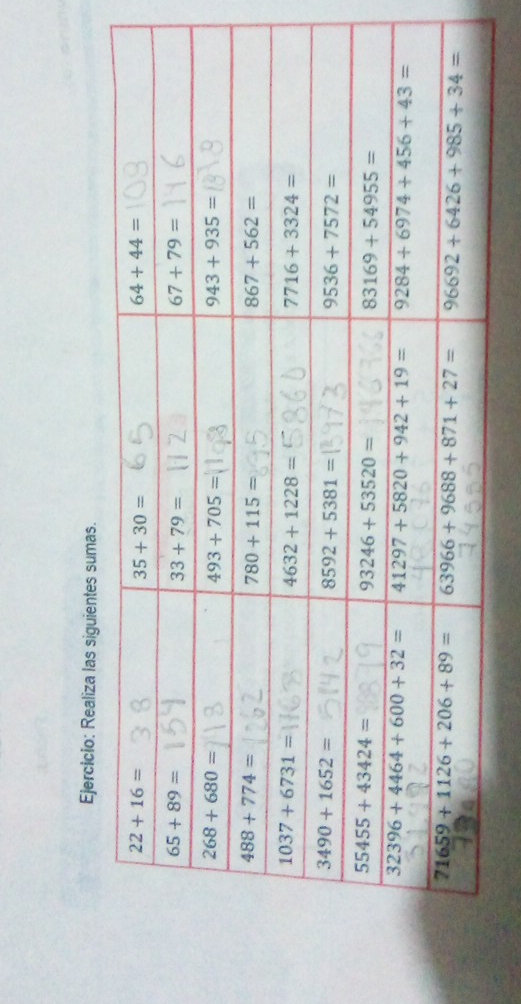 Ejercicio: Realiza las siguientes sumas.
22 + 16 = 38 35 + 30 = 65 64 + 44 = 108
65 + 89 = 154 33 + 79 = 112 67 + 79 = 146
268 + 680 = 493 + 705 = 1198 943 + 935 = 1878
488 + 774 = 1262 780 + 115 = 895 867 + 562 =
1037 + 6731 = 4632 + 1228 = 5860 7716 + 3324 =
3490 + 1652 = 5142 8592 + 5381 = 13973 9536 + 7572 =
55455 + 43424 = 93246 + 53520 = 83169 + 54955 =
32396 + 4464 + 600 + 32 = 41297 + 5820 + 942 + 19 = 9284 + 6974 + 456 + 43 =
71659 + 1126 + 206 + 89 = 63966 + 9688 + 871 + 27 = 96692 + 6426 + 985 + 34 =